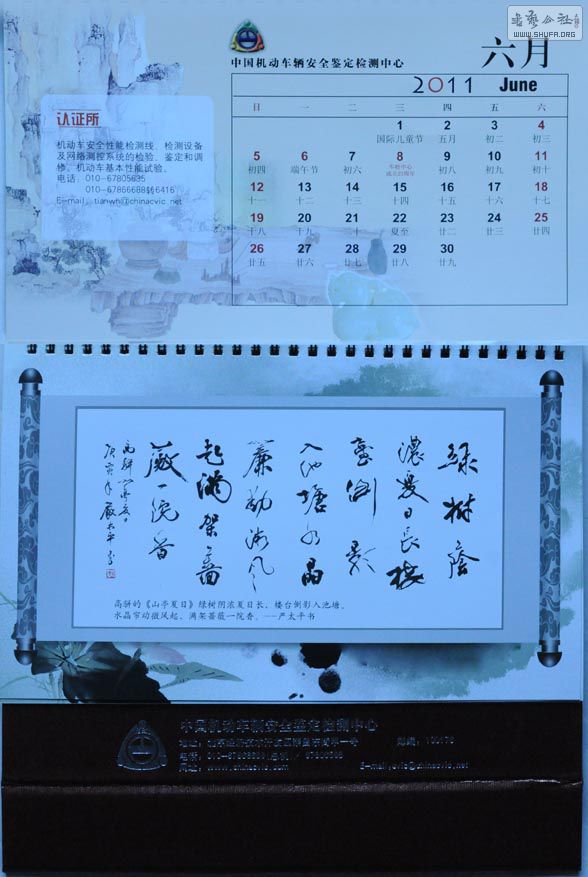 书艺公社
WWW.SHUFA.ORG
中国机动车辆安全鉴定检测中心
六月
2011 June
认证所
机动车安全性能检测线、检测设备
及网络测控系统的检验、鉴定和调
修、机动车基本性能试验。
电话：010-67805635
010-67866688转6416
E-mail：tianwh@chinacvic.net
日 一 二 三 四 五 六
1 2 3 4
国际儿童节 五月 初二 初三
5 6 7 8 9 10 11
初四 端午节 初六 初八 初九 初十
12 13 14 15 16 17 18
十一 十二 十三 十四 十五 十六 十七
19 20 21 22 23 24 25
十八 十九 二十 夏至 廿二 廿三 廿四
26 27 28 29 30
廿五 廿六 廿七 廿八 廿九
绿树荫
浓夏日长楼
台倒影
入池塘水晶
帘动微风
起满架蔷
薇一院香
高骈山亭夏日
庚寅年严太平书
高骈的《山亭夏日》绿树阴浓夏日长，楼台倒影入池塘。
水晶帘动微风起，满架蔷薇一院香。---严太平书
中国机动车辆安全鉴定检测中心